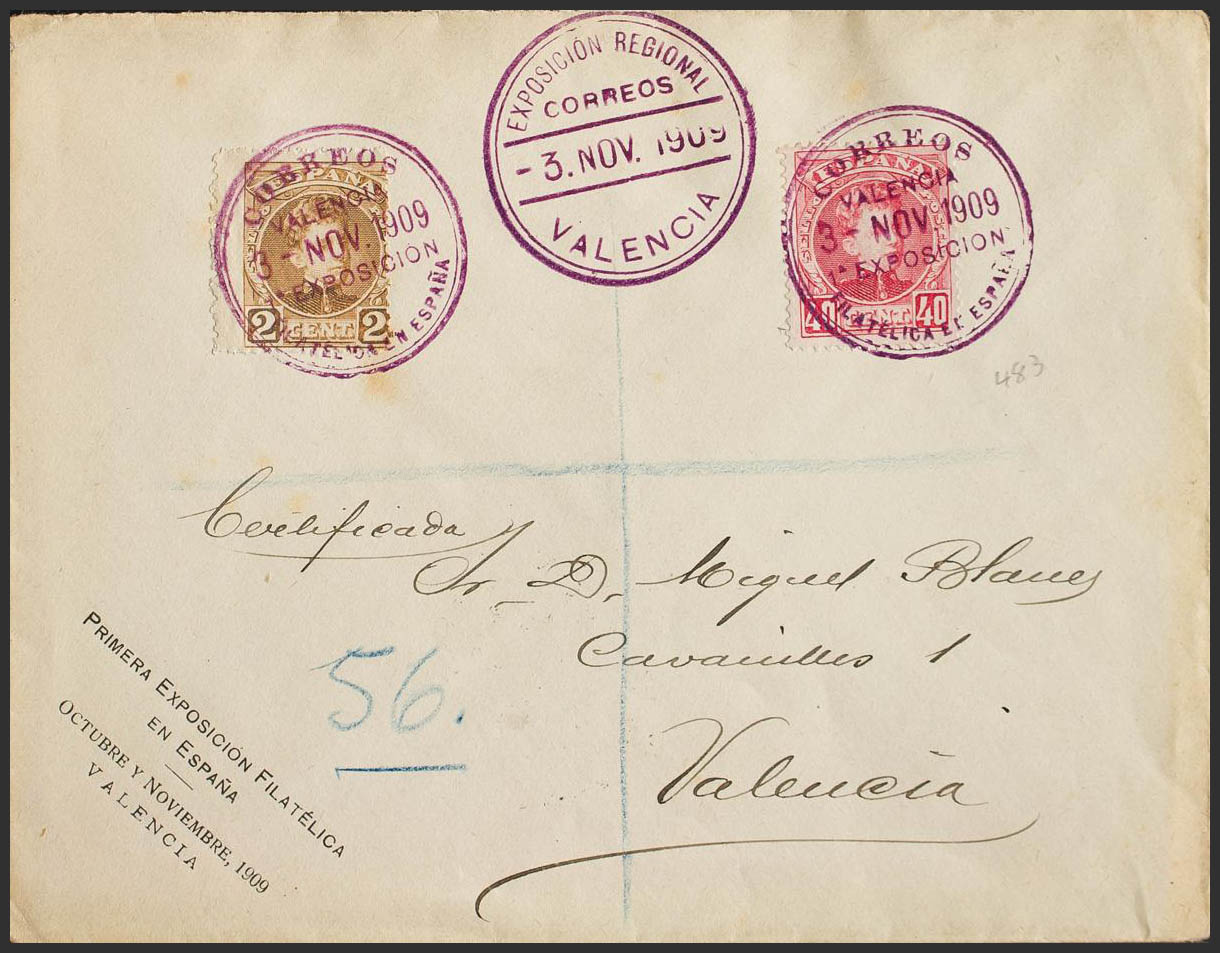 EXPOSICIÓN REGIONAL
CORREOS
- 3. NOV. 1909
VALENCIA
CORREOS
VALENCIA
3 - NOV. 1909
1ª EXPOSICIÓN
FILATÉLICA EN ESPAÑA
2 CENT. 2
CORREOS
VALENCIA
3 - NOV. 1909
1ª EXPOSICIÓN
FILATÉLICA EN ESPAÑA
40 CENT. 40
483
Certificada
Sr. D. Miguel Blanes
Cavanilles 1
Valencia
56.
PRIMERA EXPOSICIÓN FILATÉLICA
EN ESPAÑA
OCTUBRE Y NOVIEMBRE, 1909
VALENCIA